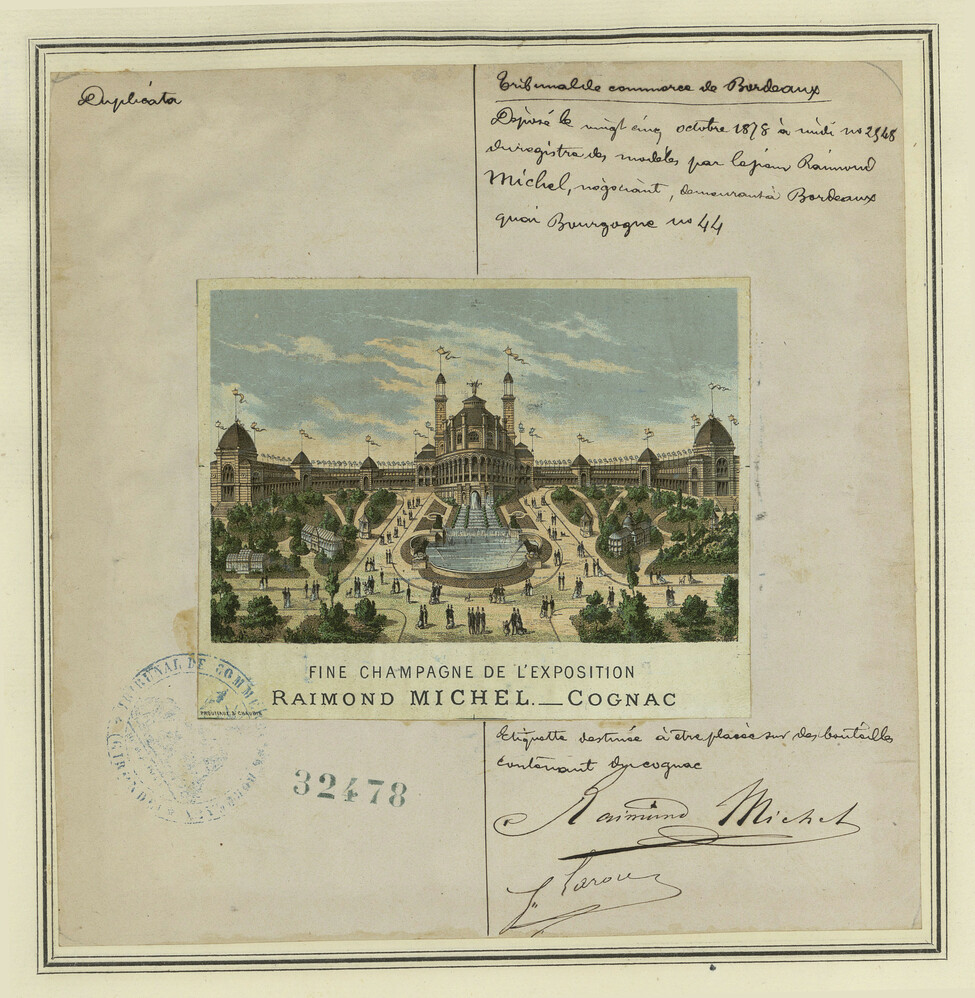 Duplicata
Tribunal de commerce de Bordeaux
Déposé le vingt cinq octobre 1878 à midi no 2548
du registre des modèles par le sieur Raimond
Michel, négociant, demeurant à Bordeaux
quai Bourgogne no 44
FINE CHAMPAGNE DE L'EXPOSITION
RAIMOND MICHEL._COGNAC
TRIBUNAL DE COMMERCE
32478
Etiquette destinée à etre placée sur des bouteilles
contenant du cognac
Raimond Michel